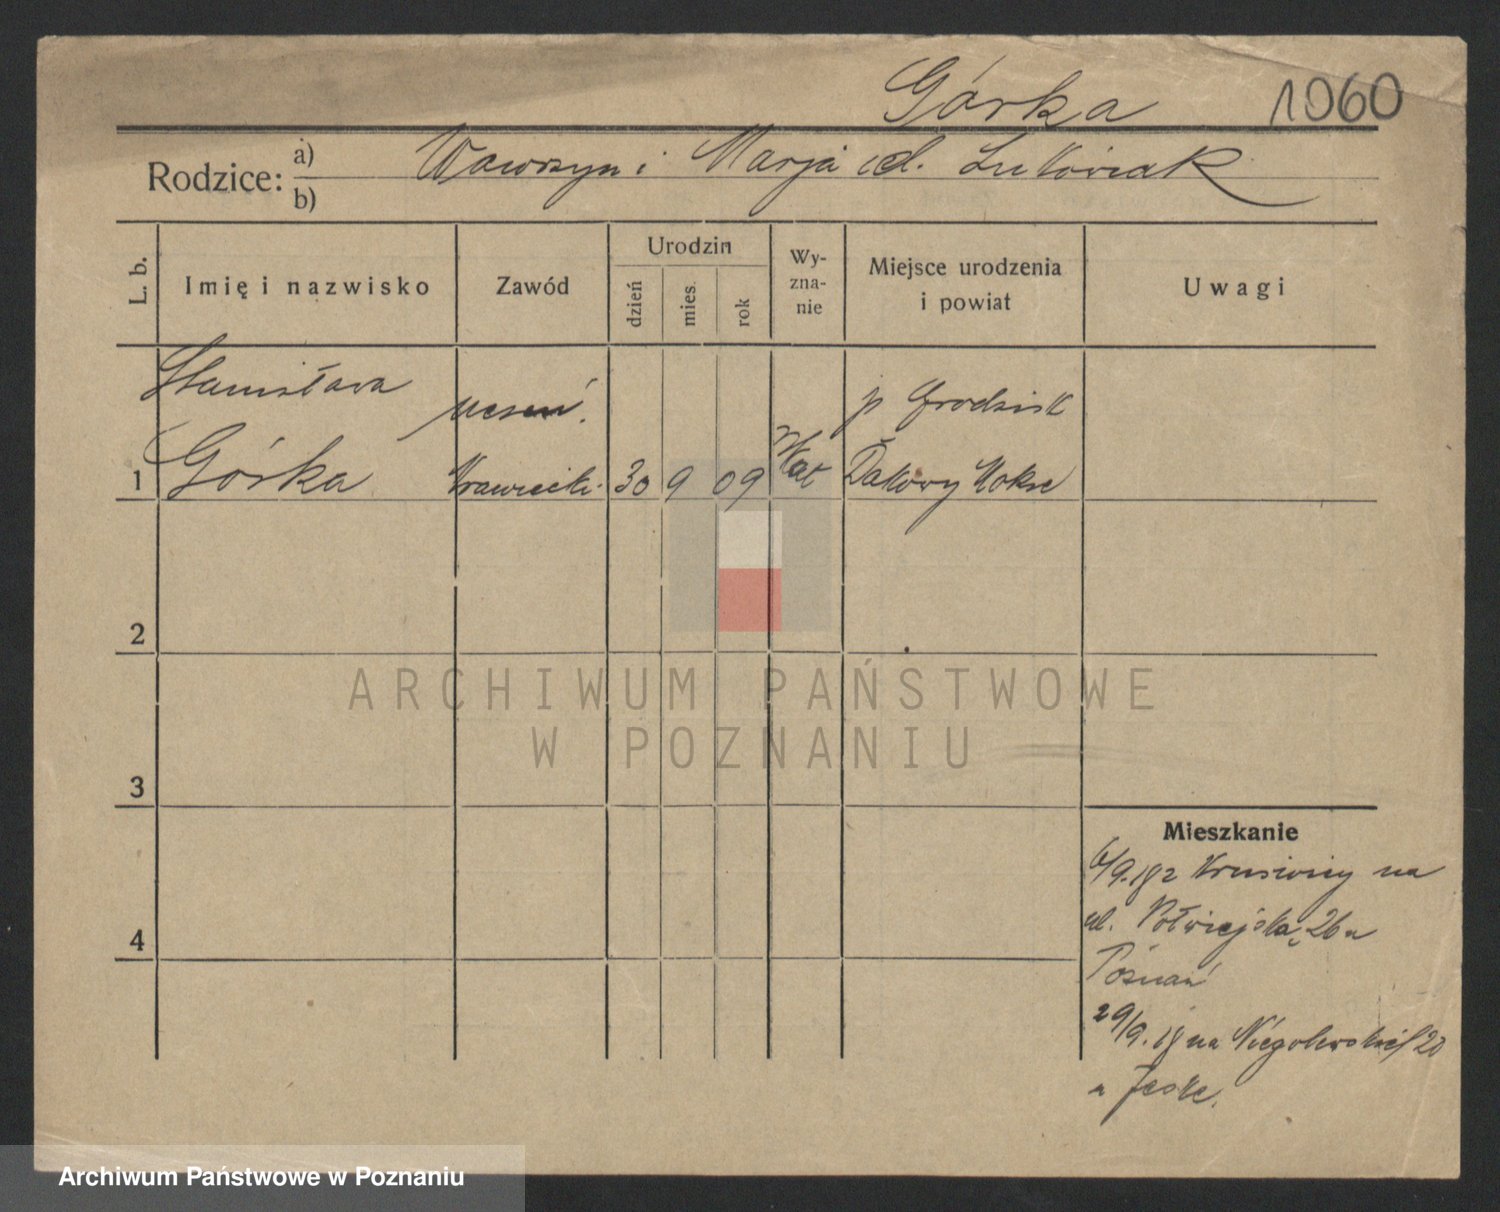 Górka 1060
Rodzice: a) Wawrzyn i Marja cd. Lukowiak
b)
L. b. Imię i nazwisko Zawód Urodzin dzień mies. rok Wy-zna-nie Miejsce urodzenia i powiat Uwagi
Stanisława uczeń. p Grodzisk
1 Górka Krawiecki 30 9 09 Kat Dakowy Mokre
2
3
4
Mieszkanie
6/9. 18 z Kruświcy na
ul. Półwiejską 26
Poznań
29/9. 18 na Niegolewskich 20
u Jeske.
ARCHIWUM PAŃSTWOWE
W POZNANIU
Archiwum Państwowe w Poznaniu